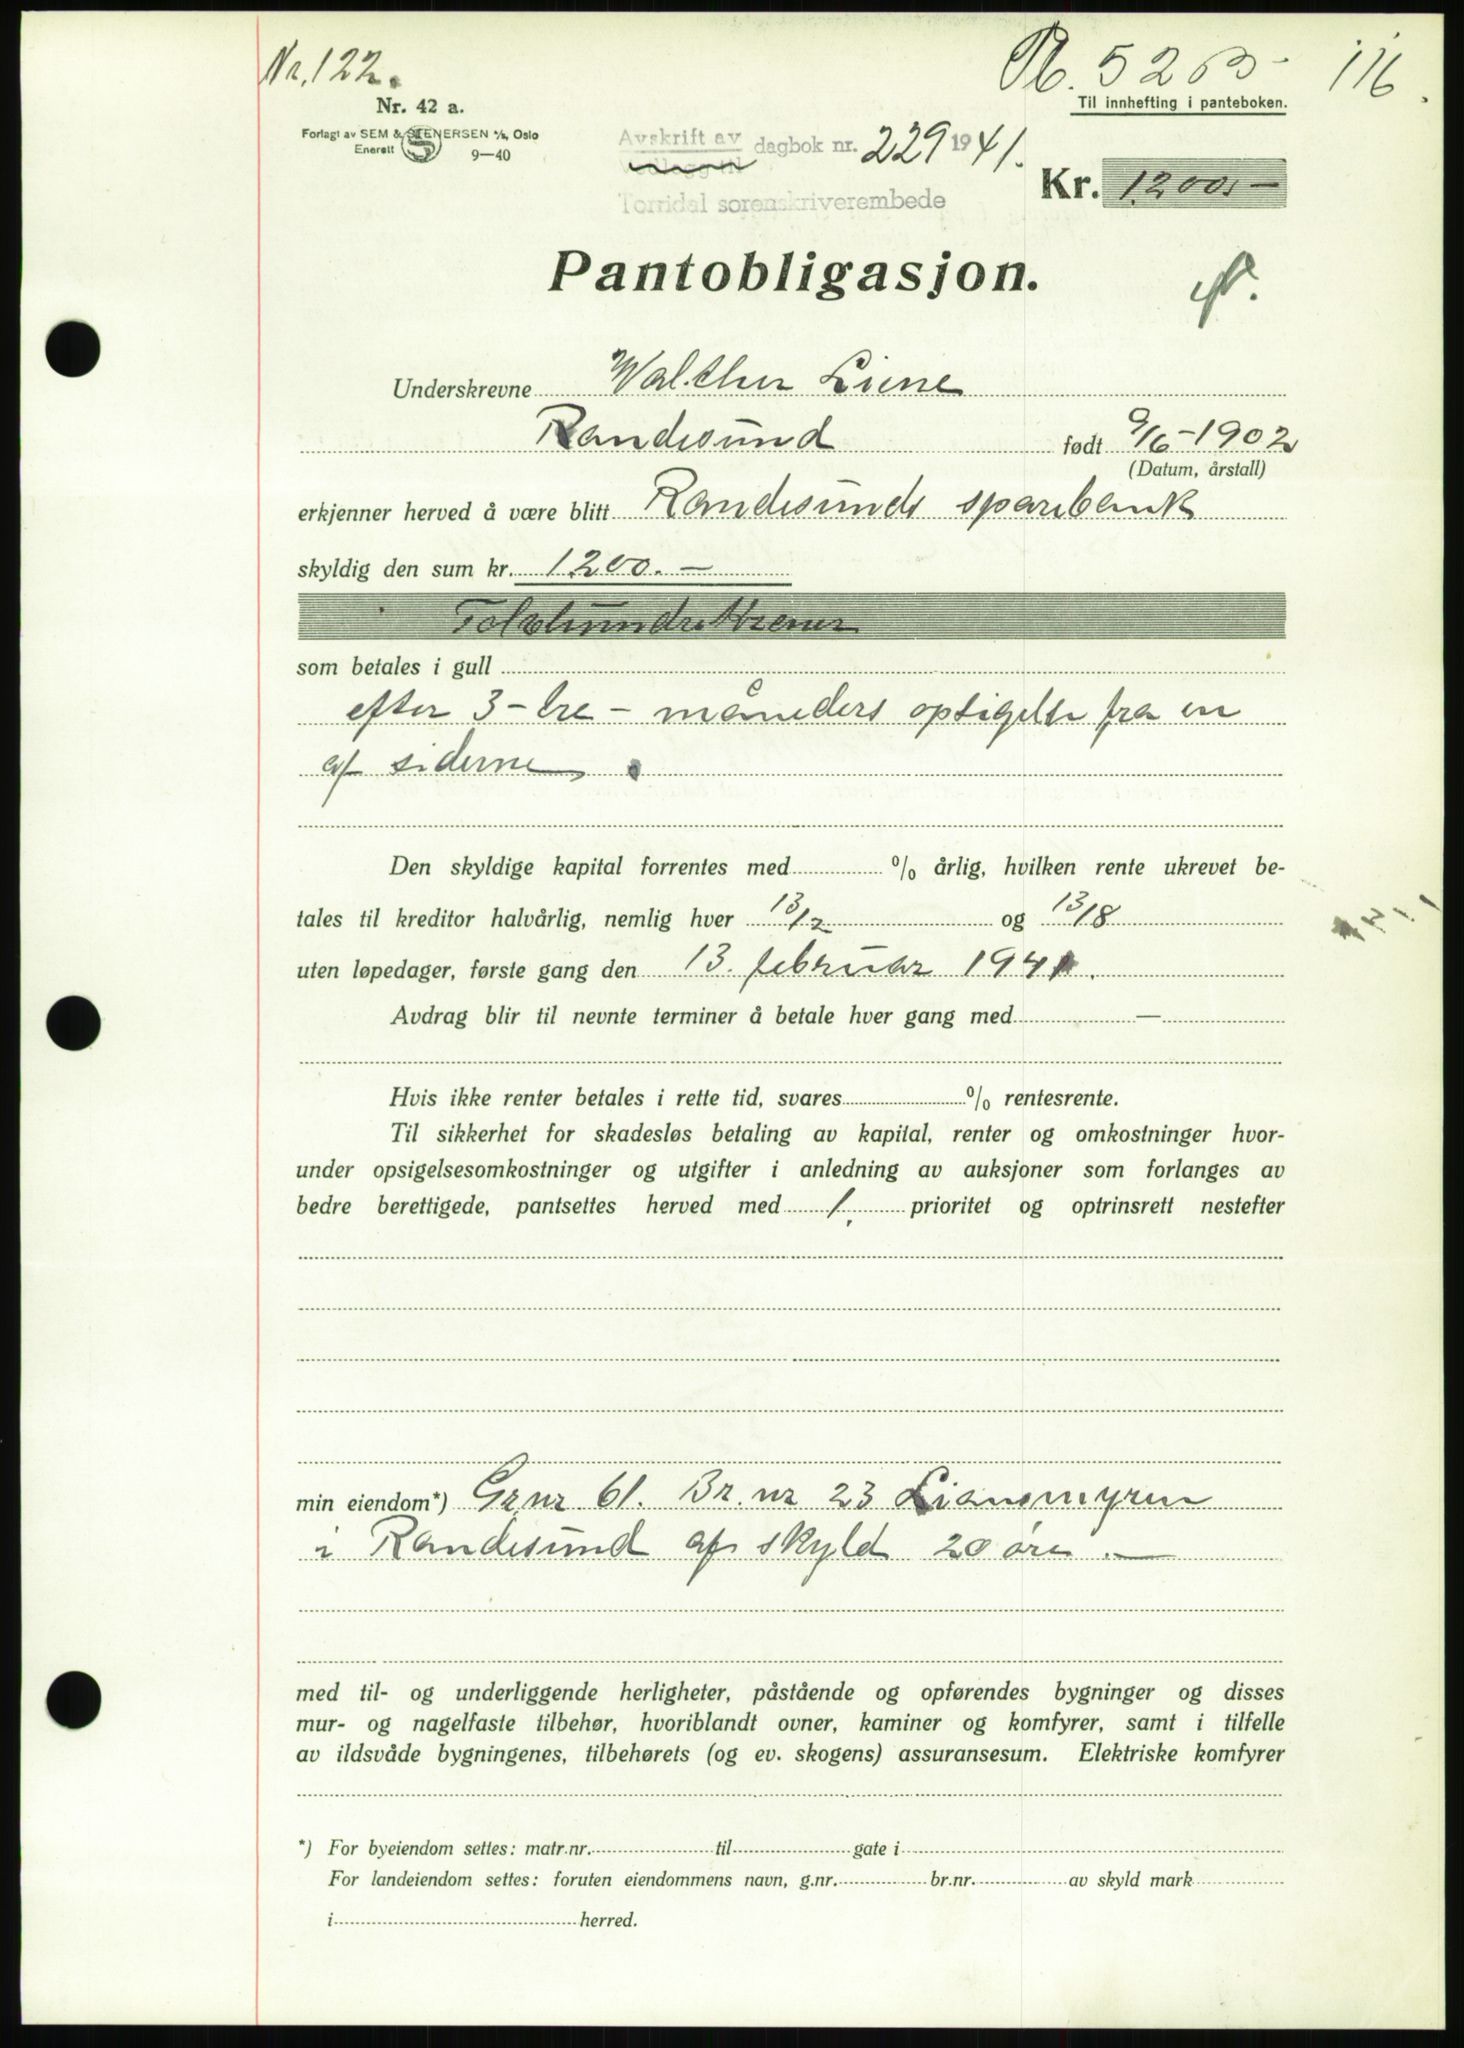 Nr. 122.
Pb. 52 B
116.
Nr. 42 a.
Til innhefting i panteboken.
Forlagt av SEM & STENERSEN A/S, Oslo
Enerett
9—40
Avskrift av
Vedlegg til
dagbok nr. 229 1941.
Torridal sorenskriverembede
Kr. 1200.-
Pantobligasjon.
Underskrevne Walther Liene
Randesund født 9/6-1902
(Datum, årstall)
erkjenner herved å være blitt Randesunds sparebank
skyldig den sum kr. 1200.-
Tolvhundre kroner
som betales i gull
efter 3-tre-måneders opsigelse fra en
af siderne.
Den skyldige kapital forrentes med % årlig, hvilken rente ukrevet be-
tales til kreditor halvårlig, nemlig hver 13/2 og 13/8
uten løpedager, første gang den 13. februar 1941.
Avdrag blir til nevnte terminer å betale hver gang med —
Hvis ikke renter betales i rette tid, svares % rentesrente.
Til sikkerhet for skadesløs betaling av kapital, renter og omkostninger hvor-
under opsigelsesomkostninger og utgifter i anledning av auksjoner som forlanges av
bedre berettigede, pantsettes herved med 1. prioritet og optrinsrett nestefter
min eiendom*) Gr.nr 61. Br.nr 23 Liansmyren
i Randesund af skyld 20 øre.—
med til- og underliggende herligheter, påstående og opførendes bygninger og disses
mur- og nagelfaste tilbehør, hvoriblandt ovner, kaminer og komfyrer, samt i tilfelle
av ildsvåde bygningenes, tilbehørets (og ev. skogens) assuransesum. Elektriske komfyrer
*) For byeiendom settes: matr.nr. til gate i
For landeiendom settes: foruten eiendommens navn, g.nr. br.nr. av skyld mark
i herred.